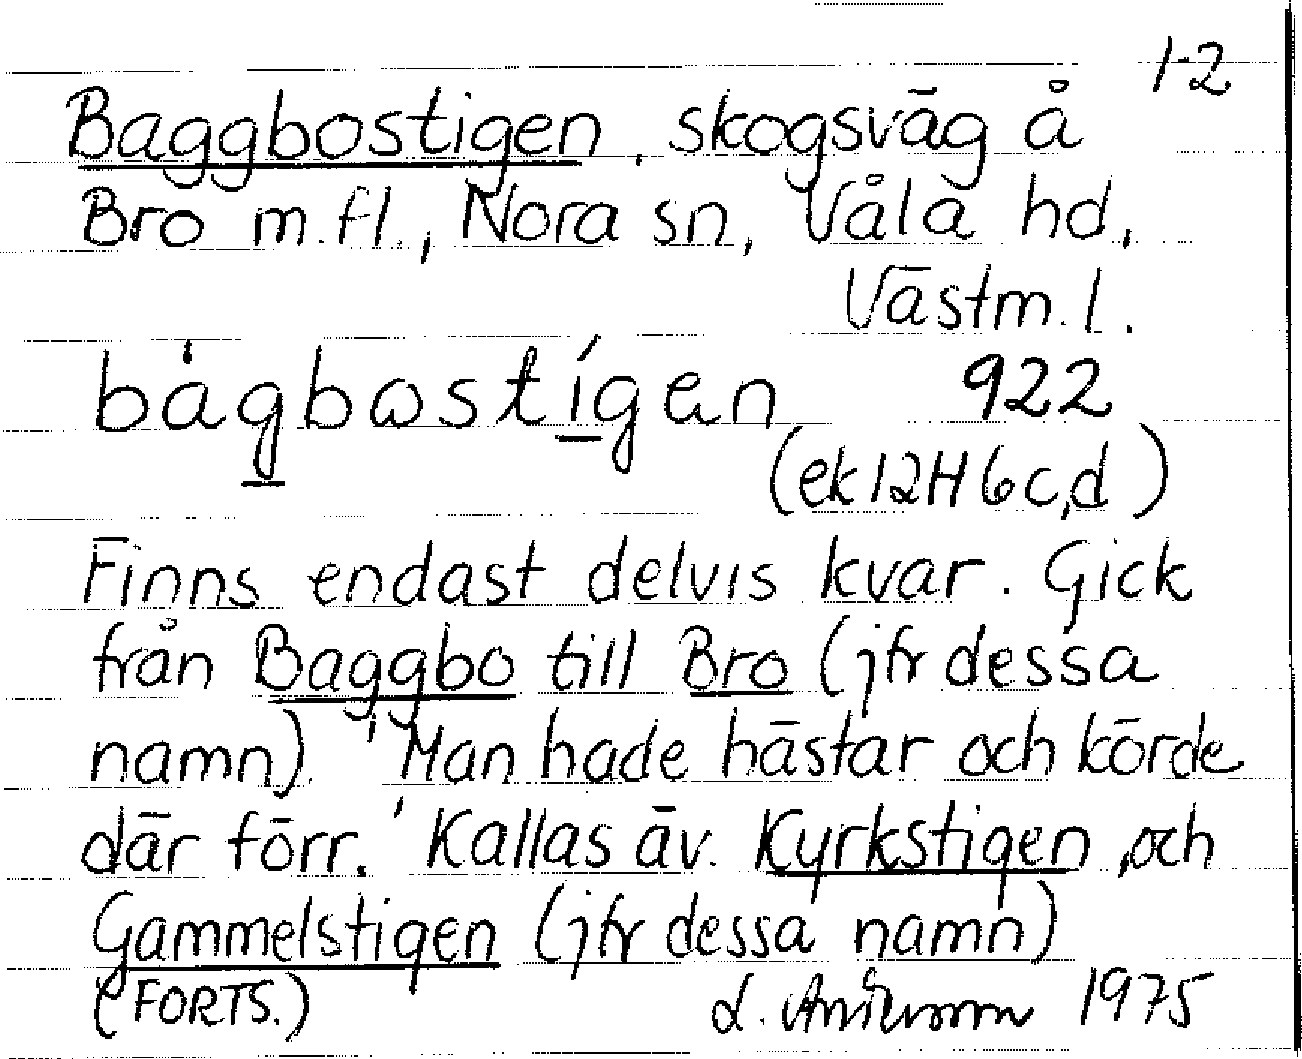 1-2
Baggbostigen, skogsväg å
Bro m.fl., Nora sn, Våla hd,
Västm.l.
bàgbostígen 922
(ek 12H 6c,d)
Finns endast delvis kvar. Gick
från Baggbo till Bro (jfr dessa
namn). 'Man hade hästar och körde
där förr.' Kallas äv. Kyrkstigen, och
Gammelstigen (jfr dessa namn)
(FORTS.) 1975